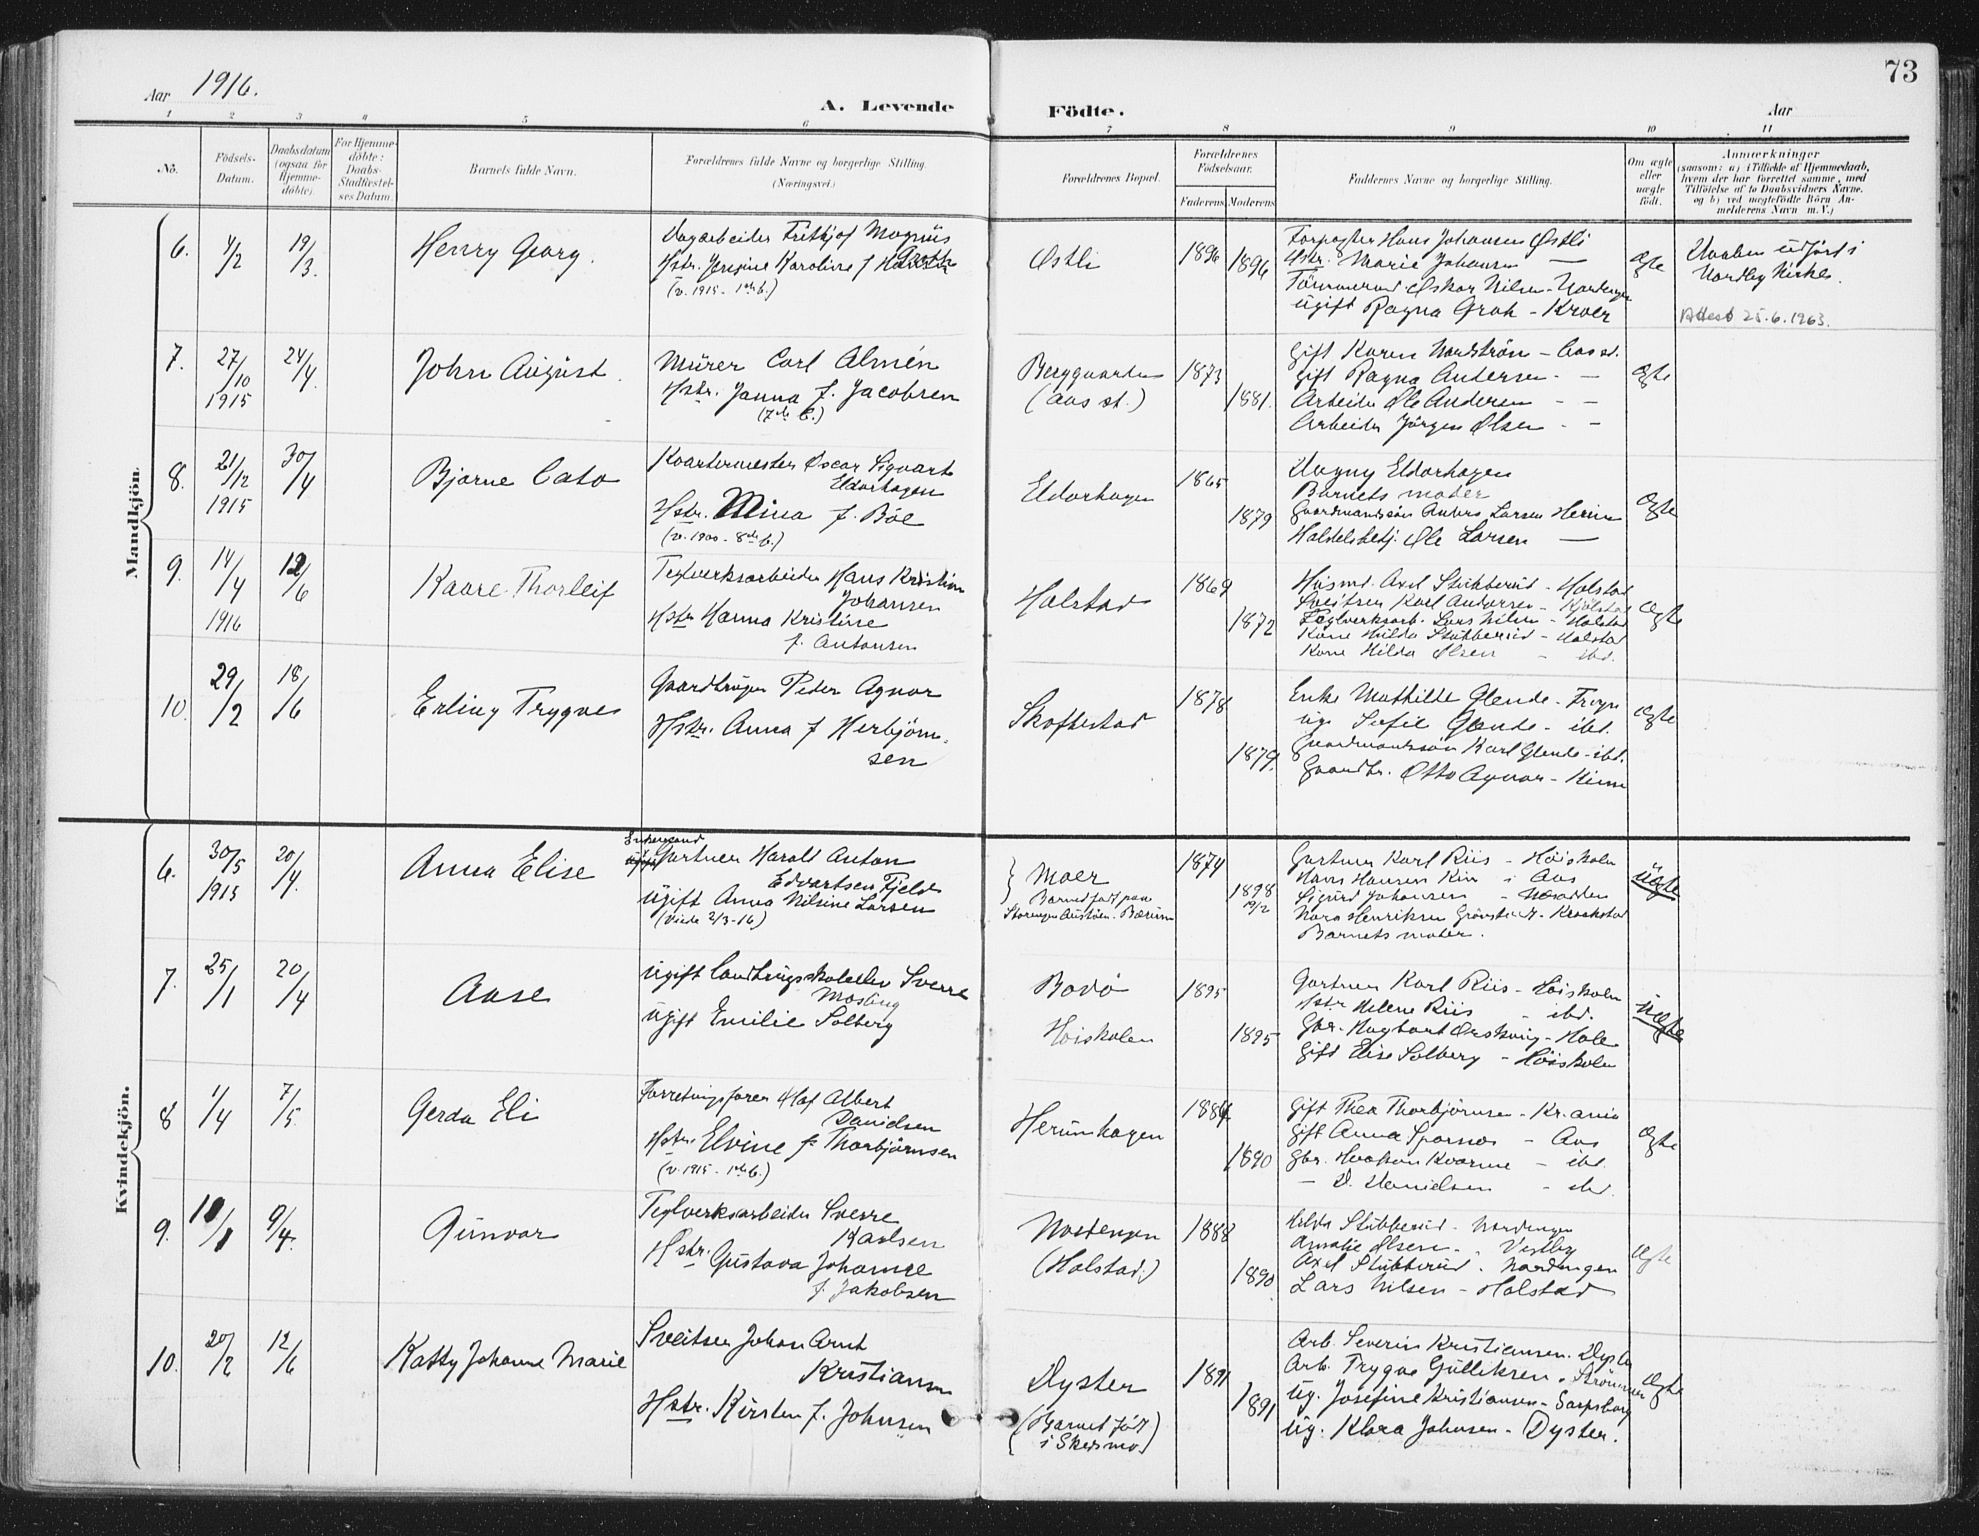 73
Aar 1916.
A. Levende Födte.
Aar
1 2 3 4 5 6 7 8 9 10 11
No.
Födsels-Datum.
Daabsdatum (ogsaa for Hjemmedöbte).
For Hjemmedöbte: Daabs-Stadfæstelses Datum.
Barnets fulde Navn.
Forældrenes fulde Navne og borgerlige Stilling.
(Næringsvei.)
Forældrenes Bopæl.
Forældrenes Födselsaar.
Faderens Moderens
Faddernes Navne og borgerlige Stilling.
Om ægte eller uægte födt.
Anmærkninger
(saasom: a) i Tilfælde af Hjemmedaab,
hvem der har forrettet samme, med
Tilföielse af to Daabsvidners Navne.
og b) ved uægtefödte Börn An-
melderens Navn m. V.)
Mandkjön.
6. 4/2 19/3 Henry Georg.
Fritkjof Magnus
Hstr. Karoline f
(v. 1915 - 1ste b.)
Østli 1896 1896
Forpagter Hans Johansen Østli
Hstr. Marie Johansen —
Oskar Nilsen -
ugift Ragna Groh - Kroer
Ægte
Daaben udført i
Nordby Kirke.
Attest 25.6.1963.
7. 27/10 1915 24/4 John August
Murer Carl Almén
Hstr. Janna f. Jacobsen
(7de b.)
(Aas st.)
1873 1881.
Gift Karen Nordström - Aas st.
Gift Ragna Andersen - —
Arbeider Ole Andersen - -
Arbeider Jörgen Olsen - -
Ægte
8. 21/12 1915 30/4 Bjarne Cato
Kvartermester Oscar Sigvart
Eldorhagen
Hstr. Mina f. Böe
(v. 1900 - 8de b.)
Eldorhagen 1865 1879
Dagny Eldorhagen
Barnets moder
Gaardmandssön Anders Larsen
Ole Larsen —
Ægte
9. 14/4 1916 12/6 Kaare Thorleif
Teglverksarbeider Hans Kristian
Johansen
Hstr Hanna Kristine
f. Antonsen
Holstad 1869 1872
Husmd. Axel Stubberud - Holstad
Sveitser Karl Andersen - Kjölstad
Teglverksarb. Lars Nilsen - Holstad
Kone Hulda Stubberud - Holstad
Kone Hilda Olsen - ibd.
Ægte
10. 29/2 18/6 Erling Trygve
Gaardbruger Peter Agnor
Hstr. Anna f Herbjörn-
sen
Skoftestad 1878 1879.
Enke Mathilde Glende - Frogn
ug. Sofie Glende - ibd.
Gaardmandssön Karl Glende - ibd.
Gaardbr. Otto Agnor -
Ægte
Kvindekjön.
6. 30/5 1915 20/4 Anna Elise
Gartner Harald Anton
Edvartsen Fjeld
Ugift Anna Nilsine Larsen
(Viede 2/3-16)
Moer
Barnet født paa
Bærum
1874 1898 19/2
Gartner Karl Riis - Höiskolen
Hans Hansen i Aas
Sigurd Johansen - Nesodden
Nora Henriksen - Kraakstad
Barnets moder.
Uægte
7. 25/1 20/4 Aase
Ugift Landbrugsskoleelev Sverre
Mosling
ugift Emilie Solberg
Bodö
Höiskolen
1895 1895
Gartner Karl Riis - Höiskolen
Hstr Helene Riis - ibd.
Gbr. Hagbart - Hole
Gift Elise Solberg - Höiskolen
Uægte
8 1/4 7/5. Gerda Eli
Forretningsförer Olaf Albert
Danielsen
Hstr. Elvine f. Thorbjörnsen
(v. 1915 - 1ste b.)
Herumhagen 1884 1890
Gift Thea Thorbjörnsen - Kr.ania
Gift Anna Sparnos - Aas
Gbr. Haakon Kvarme - ibd.
— D. Danielsen - ibd.
Ægte
9. 9/4. Gunvor
Teglverksarbeider Sverre
Karlsen
Hstr. Gustava Johanne
f. Jakobsen
Nordengen
(Holstad.)
1888 1890
Hilda Stubberud - Nordengen
Amalie Olsen - Vestby
Axel Stubberud - Nordengen
Lars Nilsen - Holstad
Ægte
10. 20/2 12/6 Katty Johanne Marie
Sveitser Johan Arnt
Kristiansen
Hstr. Kirsten f. Johnsen
Dyster
(Barnet född
i Skedsmo)
1891 1891
Arb. Severin Kristiansen - Dyster
Arb. Trygve Gulliksen - Strömmen
ug. Josefine Kristiansen - Sarpsborg
ug. Klara Johnsen - Dyster.
Ægte